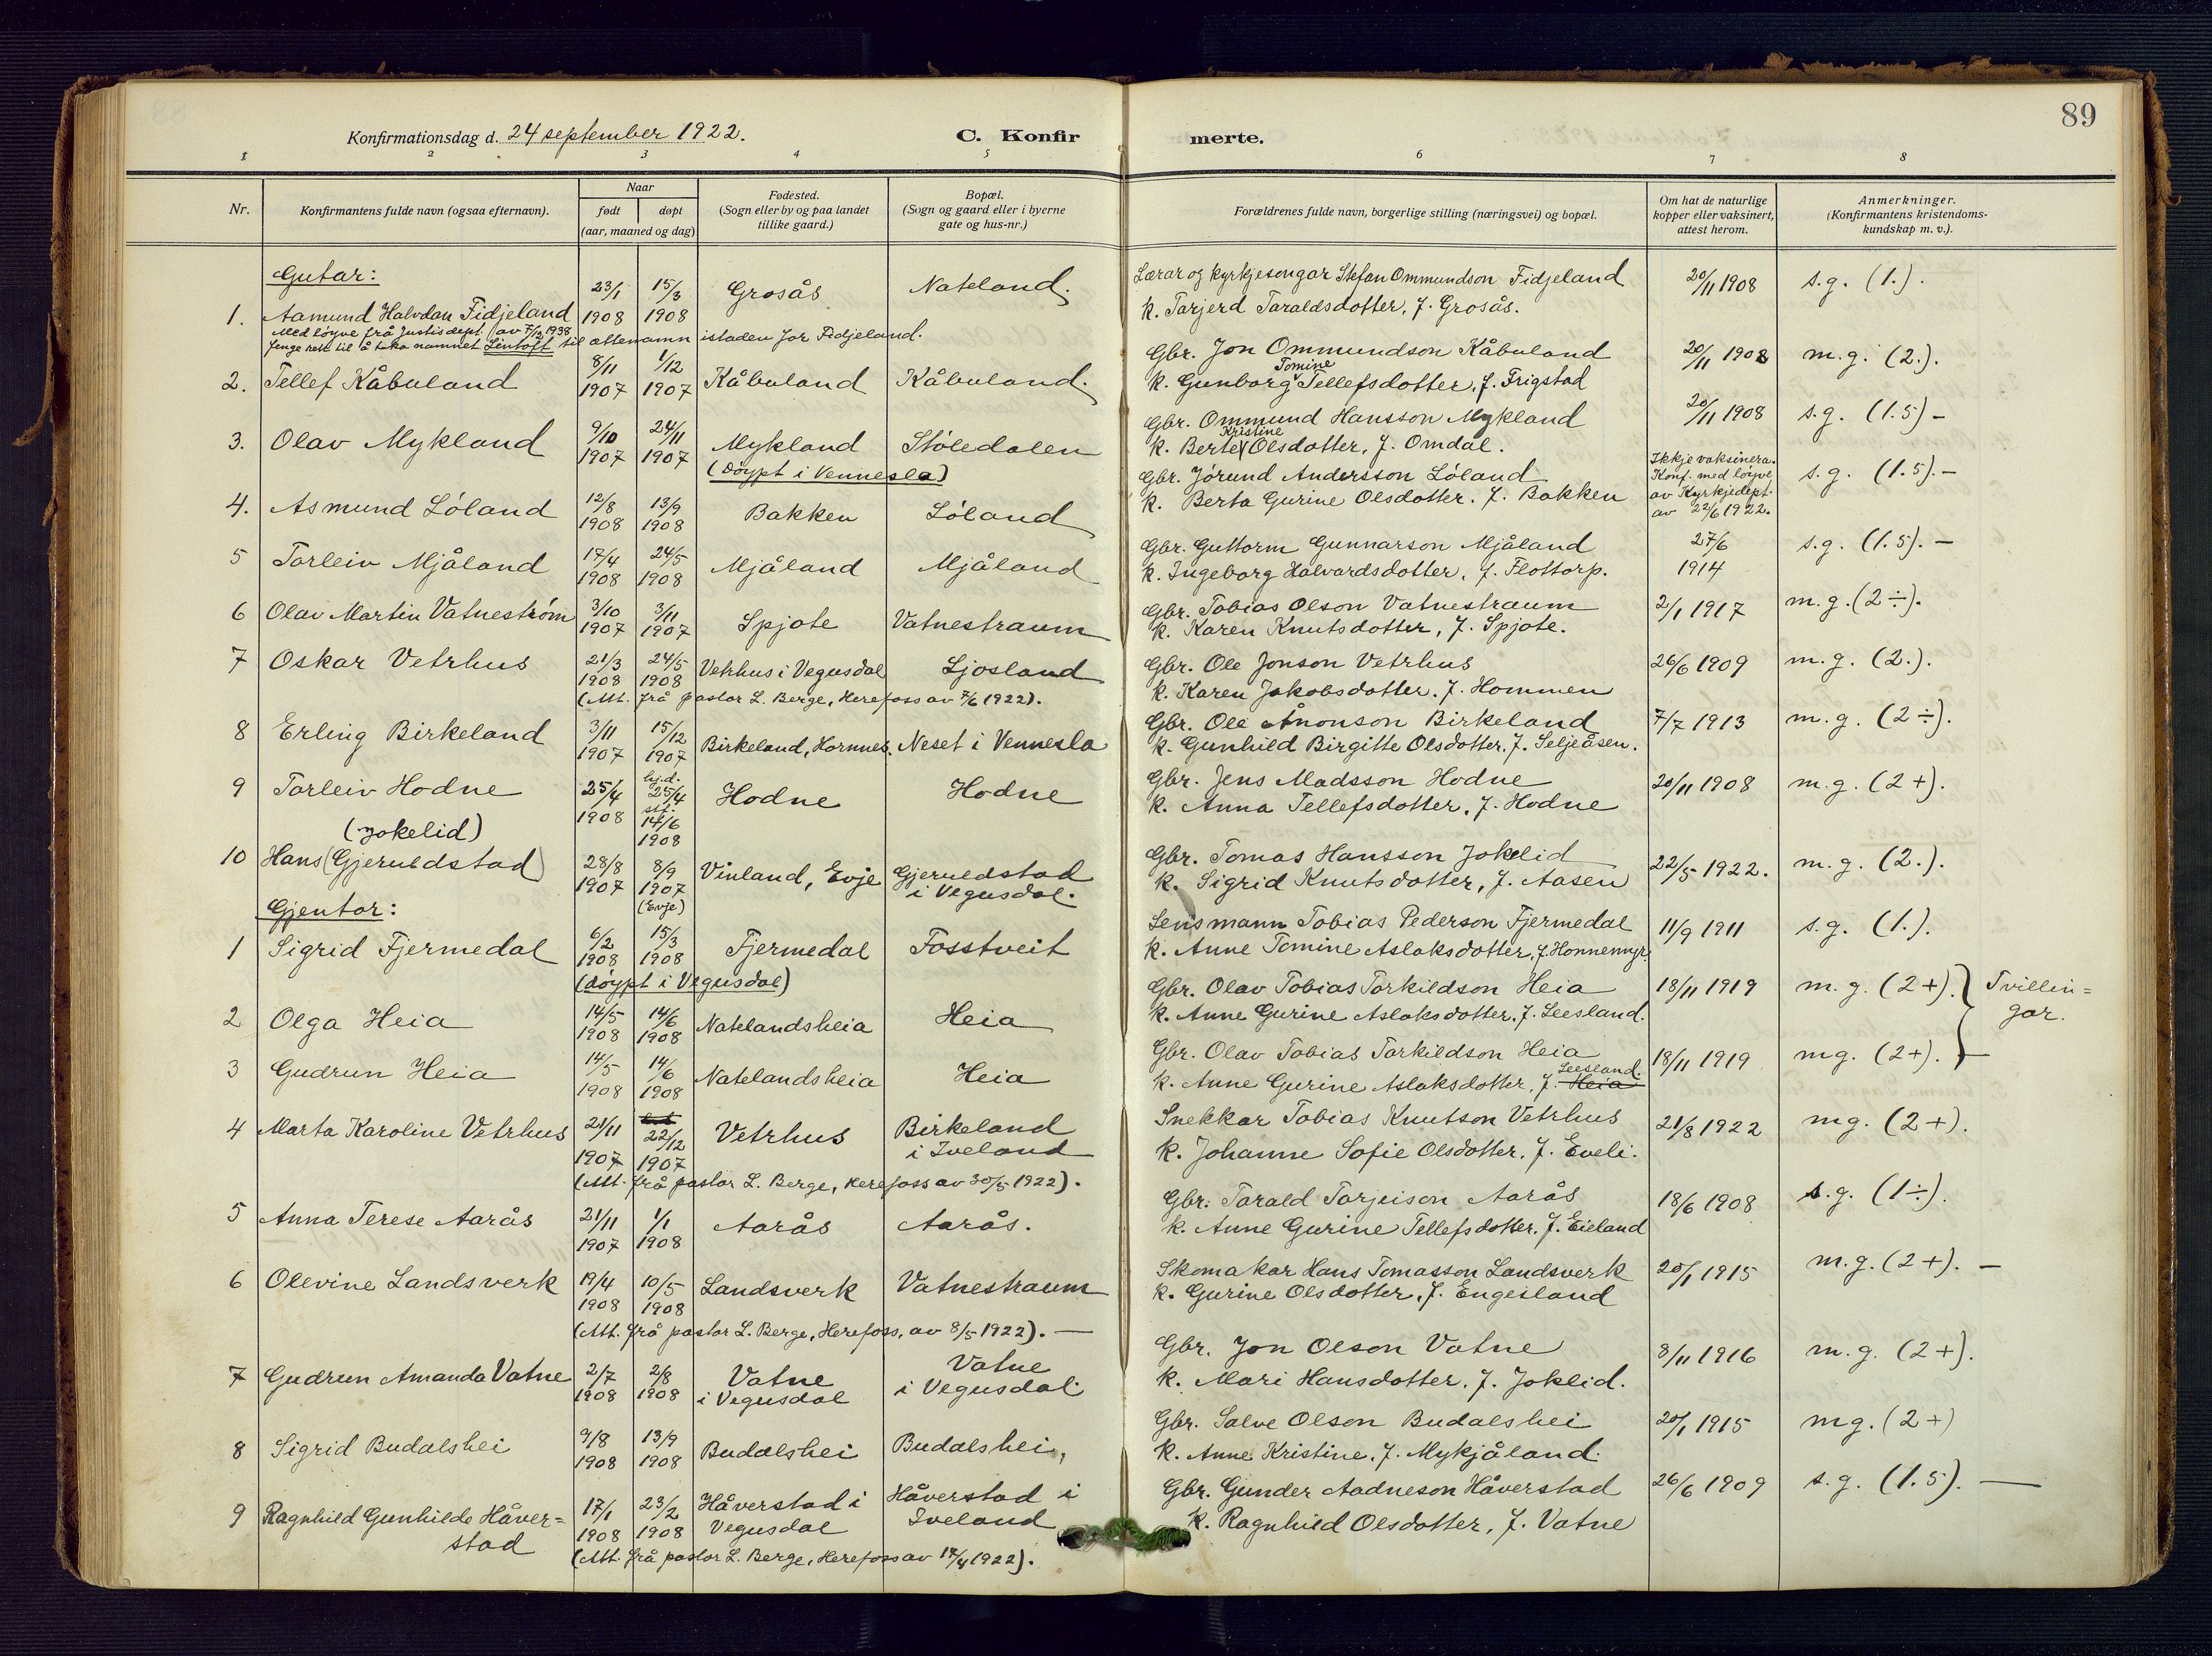 89
Konfirmationsdag d. 24 september 1922.
C. Konfir
merte.
1 2 3 4 5 6 7 8
Nr.
Konfirmantens fulde navn (ogsaa efternavn).
Naar
født døpt
(aar, maaned og dag)
Fødested.
(Sogn eller by og paa landet
tillike gaard.)
Bopæl.
(Sogn og gaard eller i byerne
gate og hus-nr.)
Forældrenes fulde navn, borgerlige stilling (næringsvei) og bopæl.
Om hat de naturlige
kopper eller vaksinert,
attest herom.
Anmerkninger.
(Konfirmantens kristendoms-
kundskap m. v.).
Gutar:
1. Aamund Halvdan Fidjeland 23/1 1908 15/3 1908 Grosås Nateland.
Lærar og kyrkjesongar Stefan Ommundson Fidjeland 20/11 1908 s.g. (1.).
k. Tarjerd Taraldsdotter, f. Grosås.
Med löyve frå Justisdept. av 7/12 1938
fenge rett til å taka namnet Lintoft til ættenamn istaden for Fidjeland.
2. Tellef Kåbuland 8/11 1907 1/12 1907 Kåbuland Kåbuland.
Gbr. Jon Ommundson Kåbuland 20/11 1908 m.g. (2.).
Tomine
k. Gunborg Tellefsdotter, f. Frigstad
3. Olav Mykland 9/10 1907 24/11 1907 Mykland Stöledalen
(Döypt i Vennesla)
Gbr. Ommund Hansson Mykland 20/11 1908 s.g. (1.5) -
Kristine
k. Berte Olsdotter, f. Omdal.
4. Asmund Lóland 12/8 1908 13/9 1908 Bakken Lóland
Gbr. Jórund Andersson Lóland s.g. (1.5). -
k. Berta Gurine Olsdotter. f. Bakken
Ikkje vaksinera.
Konf. med löyve
av Kyrkjedept.
av 22/6 1922.
5 Torleiv Mjåland 17/4 1908 24/5 1908 Mjåland Mjåland
Gbr. Guttorm Gunnarson Mjåland 27/6 1914 s.g. (1.5). -
k. Ingeborg Halvardsdotter, f. Flottorp.
6 Olav Martin Vatneström 3/10 1907 3/11 1907 Spjote Vatnestraum
Gbr. Tobias Olson Vatnestraum 2/1 1917 m.g. (2÷).
k. Karen Knutsdotter, f. Spjote.
7 Oskar Vetrhus 21/3 1908 24/5 1908 Vetrhus i Vegusdal Ljosland
(Att. frå pastor L. Berge, Herefoss av 7/6 1922).
Gbr. Ole Jonson Vetrhus 26/6 1909 m.g. (2.).
k. Karen Jakobsdotter. f. Hommen
8 Erling Birkeland 3/11 1907 15/12 1907 Birkeland, Hornnes. Neset i Vennesla
Gbr. Ole Ånonson Birkeland 7/7 1913 m.g. (2÷).
k. Gunhild Birgitte Olsdotter. f. Seljeåsen.
9 Torleiv Hodne 25/4 1908 hj.d. 25/4 st. 14/6 1908 Hodne Hodne
Gbr. Jens Madsson Hodne 20/11 1908 m.g. (2+).
k. Anna Tellefsdotter, f. Hodne
(Jokelid)
10 Hans (Gjeruldstad) 28/8 1907 8/9 1907 (Evje) Vinland, Evje Gjeruldstad
i Vegusdal.
Gbr. Tomas Hansson Jokelid 22/5 1922. m.g. (2.).
k. Sigrid Knutsdotter, f. Aasen
Gjentor:
1 Sigrid Fjermedal 6/2 1908 15/3 1908 Fjermedal Fosstveit
(döypt i Vegusdal)
Lensmann Tobias Pederson Fjermedal 11/9 1911 s.g. (1.).
k. Anne Tomine Aslaksdotter, f. Honnemyr
2 Olga Heia 14/5 1908 14/6 1908 Natelandsheia Heia
Gbr. Olav Tobias Torkildson Heia 18/11 1919 m.g. (2+). Tvillin=
k. Anne Gurine Aslaksdotter. f. Leesland. gar.
3 Gudrun Heia 14/5 1908 14/6 1908 Natelandsheia Heia
Gbr. Olav Tobias Torkildson Heia 18/11 1919 mg. (2+).
Leesland.
k. Anne Gurine Aslaksdotter, f. Heia
4 Marta Karoline Vetrhus 21/11 1907 22/12 1907 Vetrhus Birkeland
i Iveland
(Att. frå pastor L. Berge, Herefoss av 30/5 1922).
Snekkar Tobias Knutson Vetrhus 21/8 1922 mg. (2+).
k. Johanne Sofie Olsdotter, f. Eveli.
5 Anna Terese Aarås 21/11 1907 1/1 1908 Aarås Aarås.
Gbr. Tarald Torjeison Aarås 18/6 1908 s.g. (1÷).
k. Anne Gurine Tellefsdotter. f. Eieland
6 Olevine Landsverk 19/4 1908 10/5 1908 Landsverk Vatnestraum
(Att. frå pastor L. Berge, Herefoss, av 8/5 1922). -
Skomakar Hans Tomasson Landsverk 20/1 1915 m.g. (2+). -
k. Gurine Olsdotter, f. Engesland
7 Gudrun Amanda Vatne 2/7 1908 2/8 1908 Vatne i Vegusdal Vatne i Vegusdal
Gbr. Jon Olson Vatne 8/11 1916 m.g. (2+).
k. Mari Hansdotter. f. Joklid.
8 Sigrid Budalshei 9/8 1908 13/9 1908 Budalshei Budalshei,
Gbr. Salve Olson Budalshei 20/1 1915 mg. (2+)
k. Anne Kristine, f. Mykjåland.
9 Ragnhild Gunhilde Håver=
stad 17/1 1908 23/2 1908 Håverstad i Vegusdal Håverstad i Iveland
(Att. frå pastor L. Berge, Herefoss av 17/4 1922).
Gbr. Gunder Aadneson Håverstad 26/6 1909 s.g. (1.5). -
k. Ragnhild Olsdotter, f. Vatne